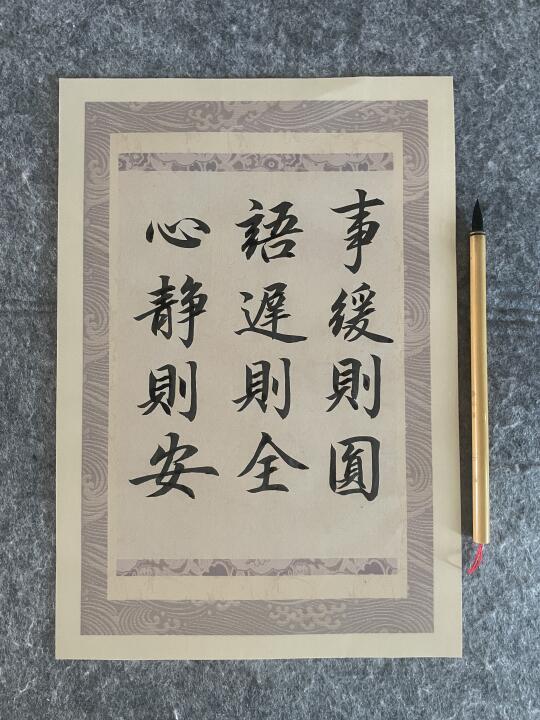 事緩則圓
語遲則全
心静則安